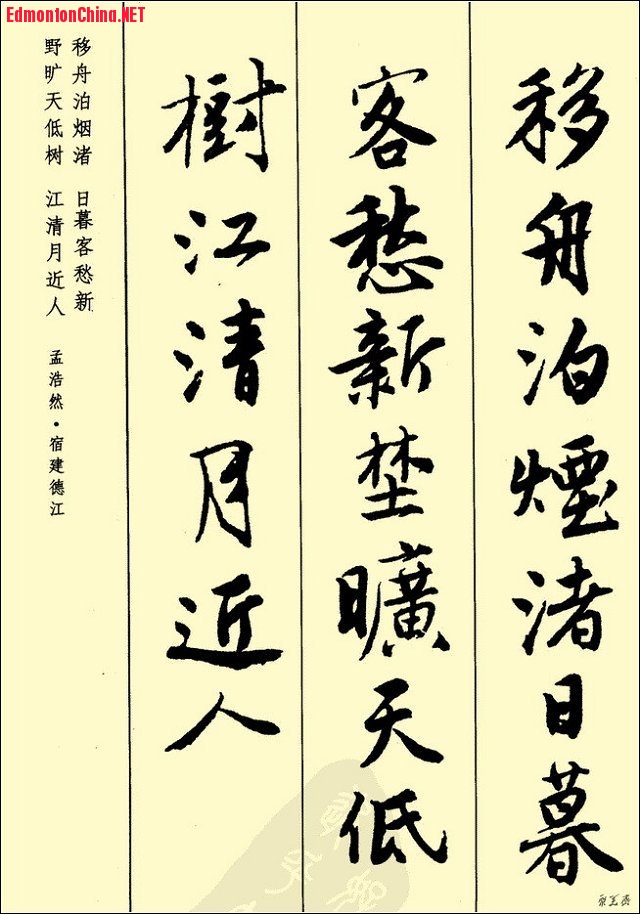 EdmontonChina.NET
移舟泊煙渚日暮
客愁新埜曠天低
樹江清月近人
移舟泊烟渚 日暮客愁新
野旷天低树 江清月近人
孟浩然·宿建德江